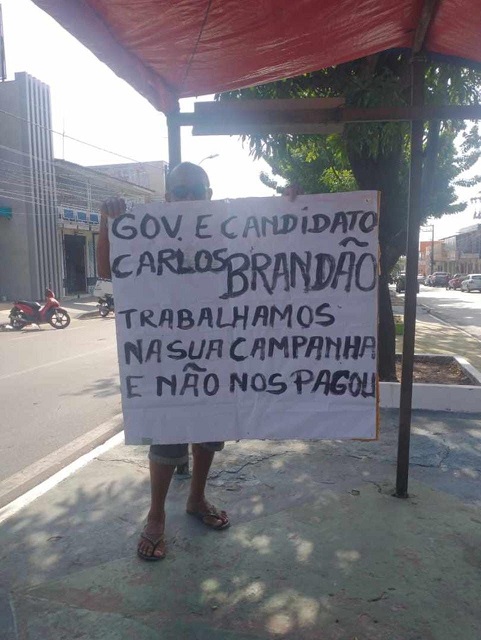 GOV. E CANDIDATO
CARLOS BRANDÃO
TRABALHAMOS
NA SUA CAMPANHA
E NÃO NOS PAGOU